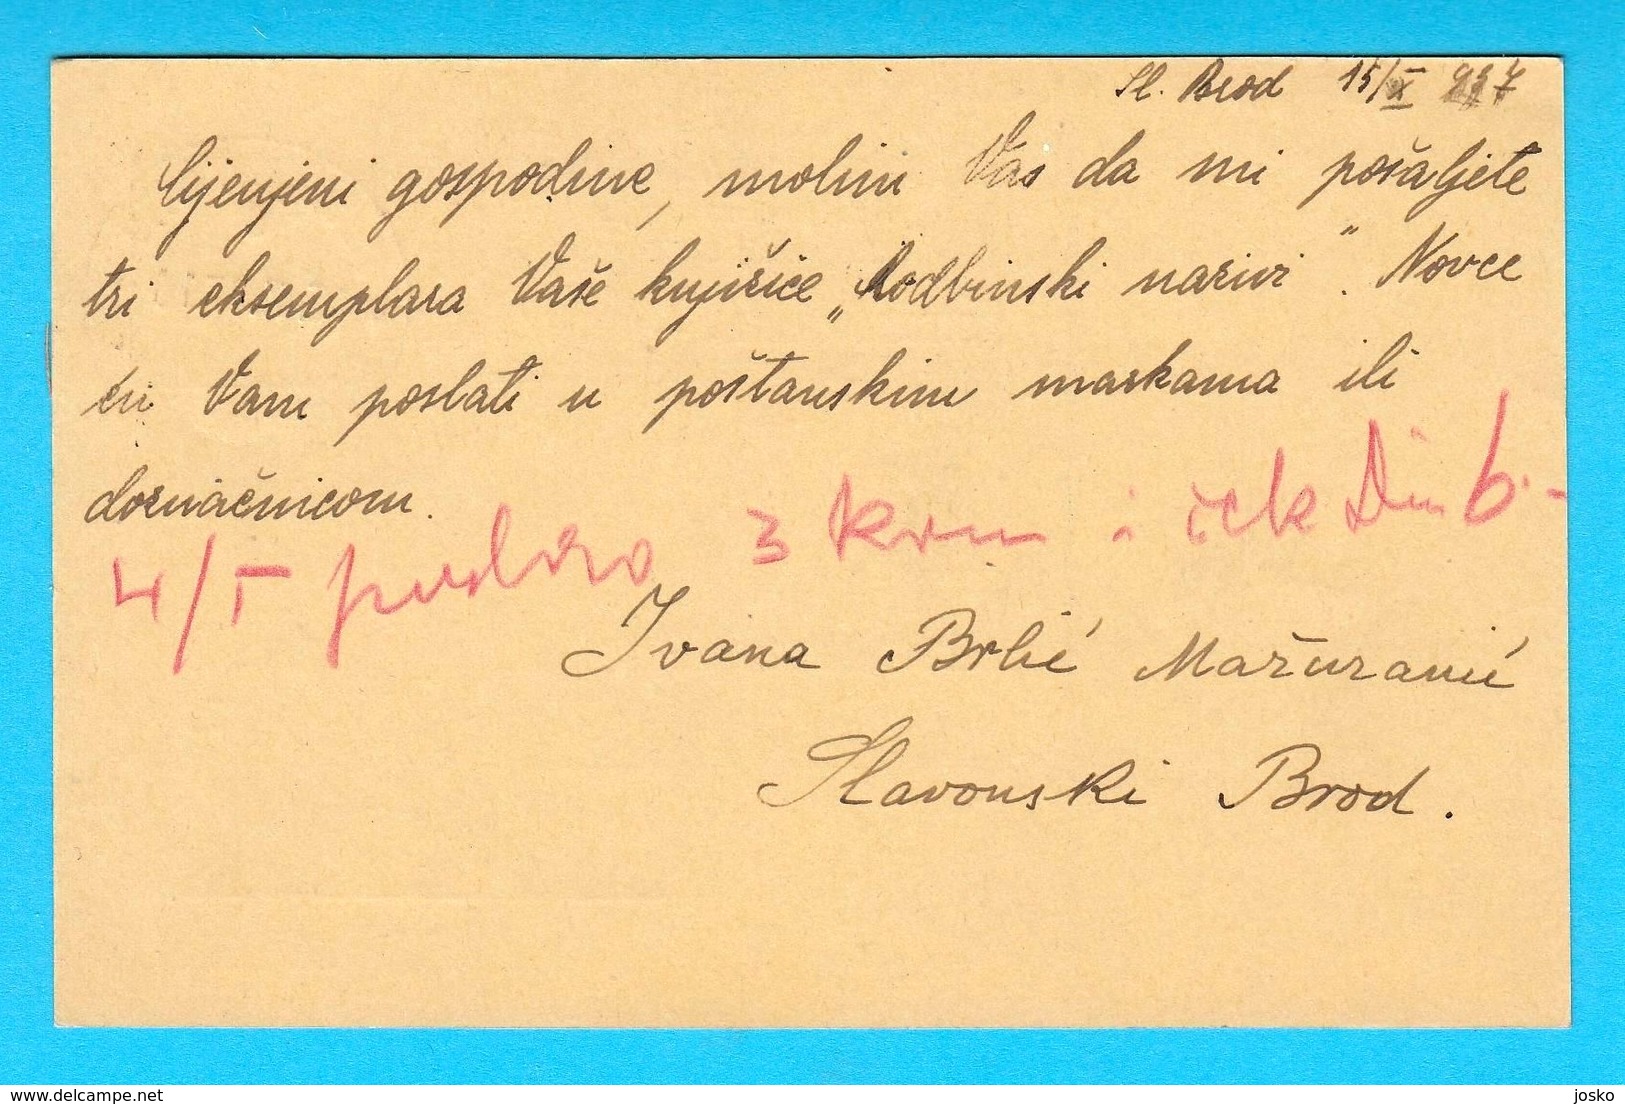 Sl. Brod 15/X 937
Cijenjeni gospodine, molim Vas da mi pošaljete
tri eksemplara Vaše knjižice „Rodbinski nazivi". Novce
ću Vam poslati u poštanskim markama ili
doznačnicom.
4/I poslao 3 kom i ček Din 6.-
Ivana Brlić Mažuranić
Slavonski Brod.
DELCAMPE.NET
josko